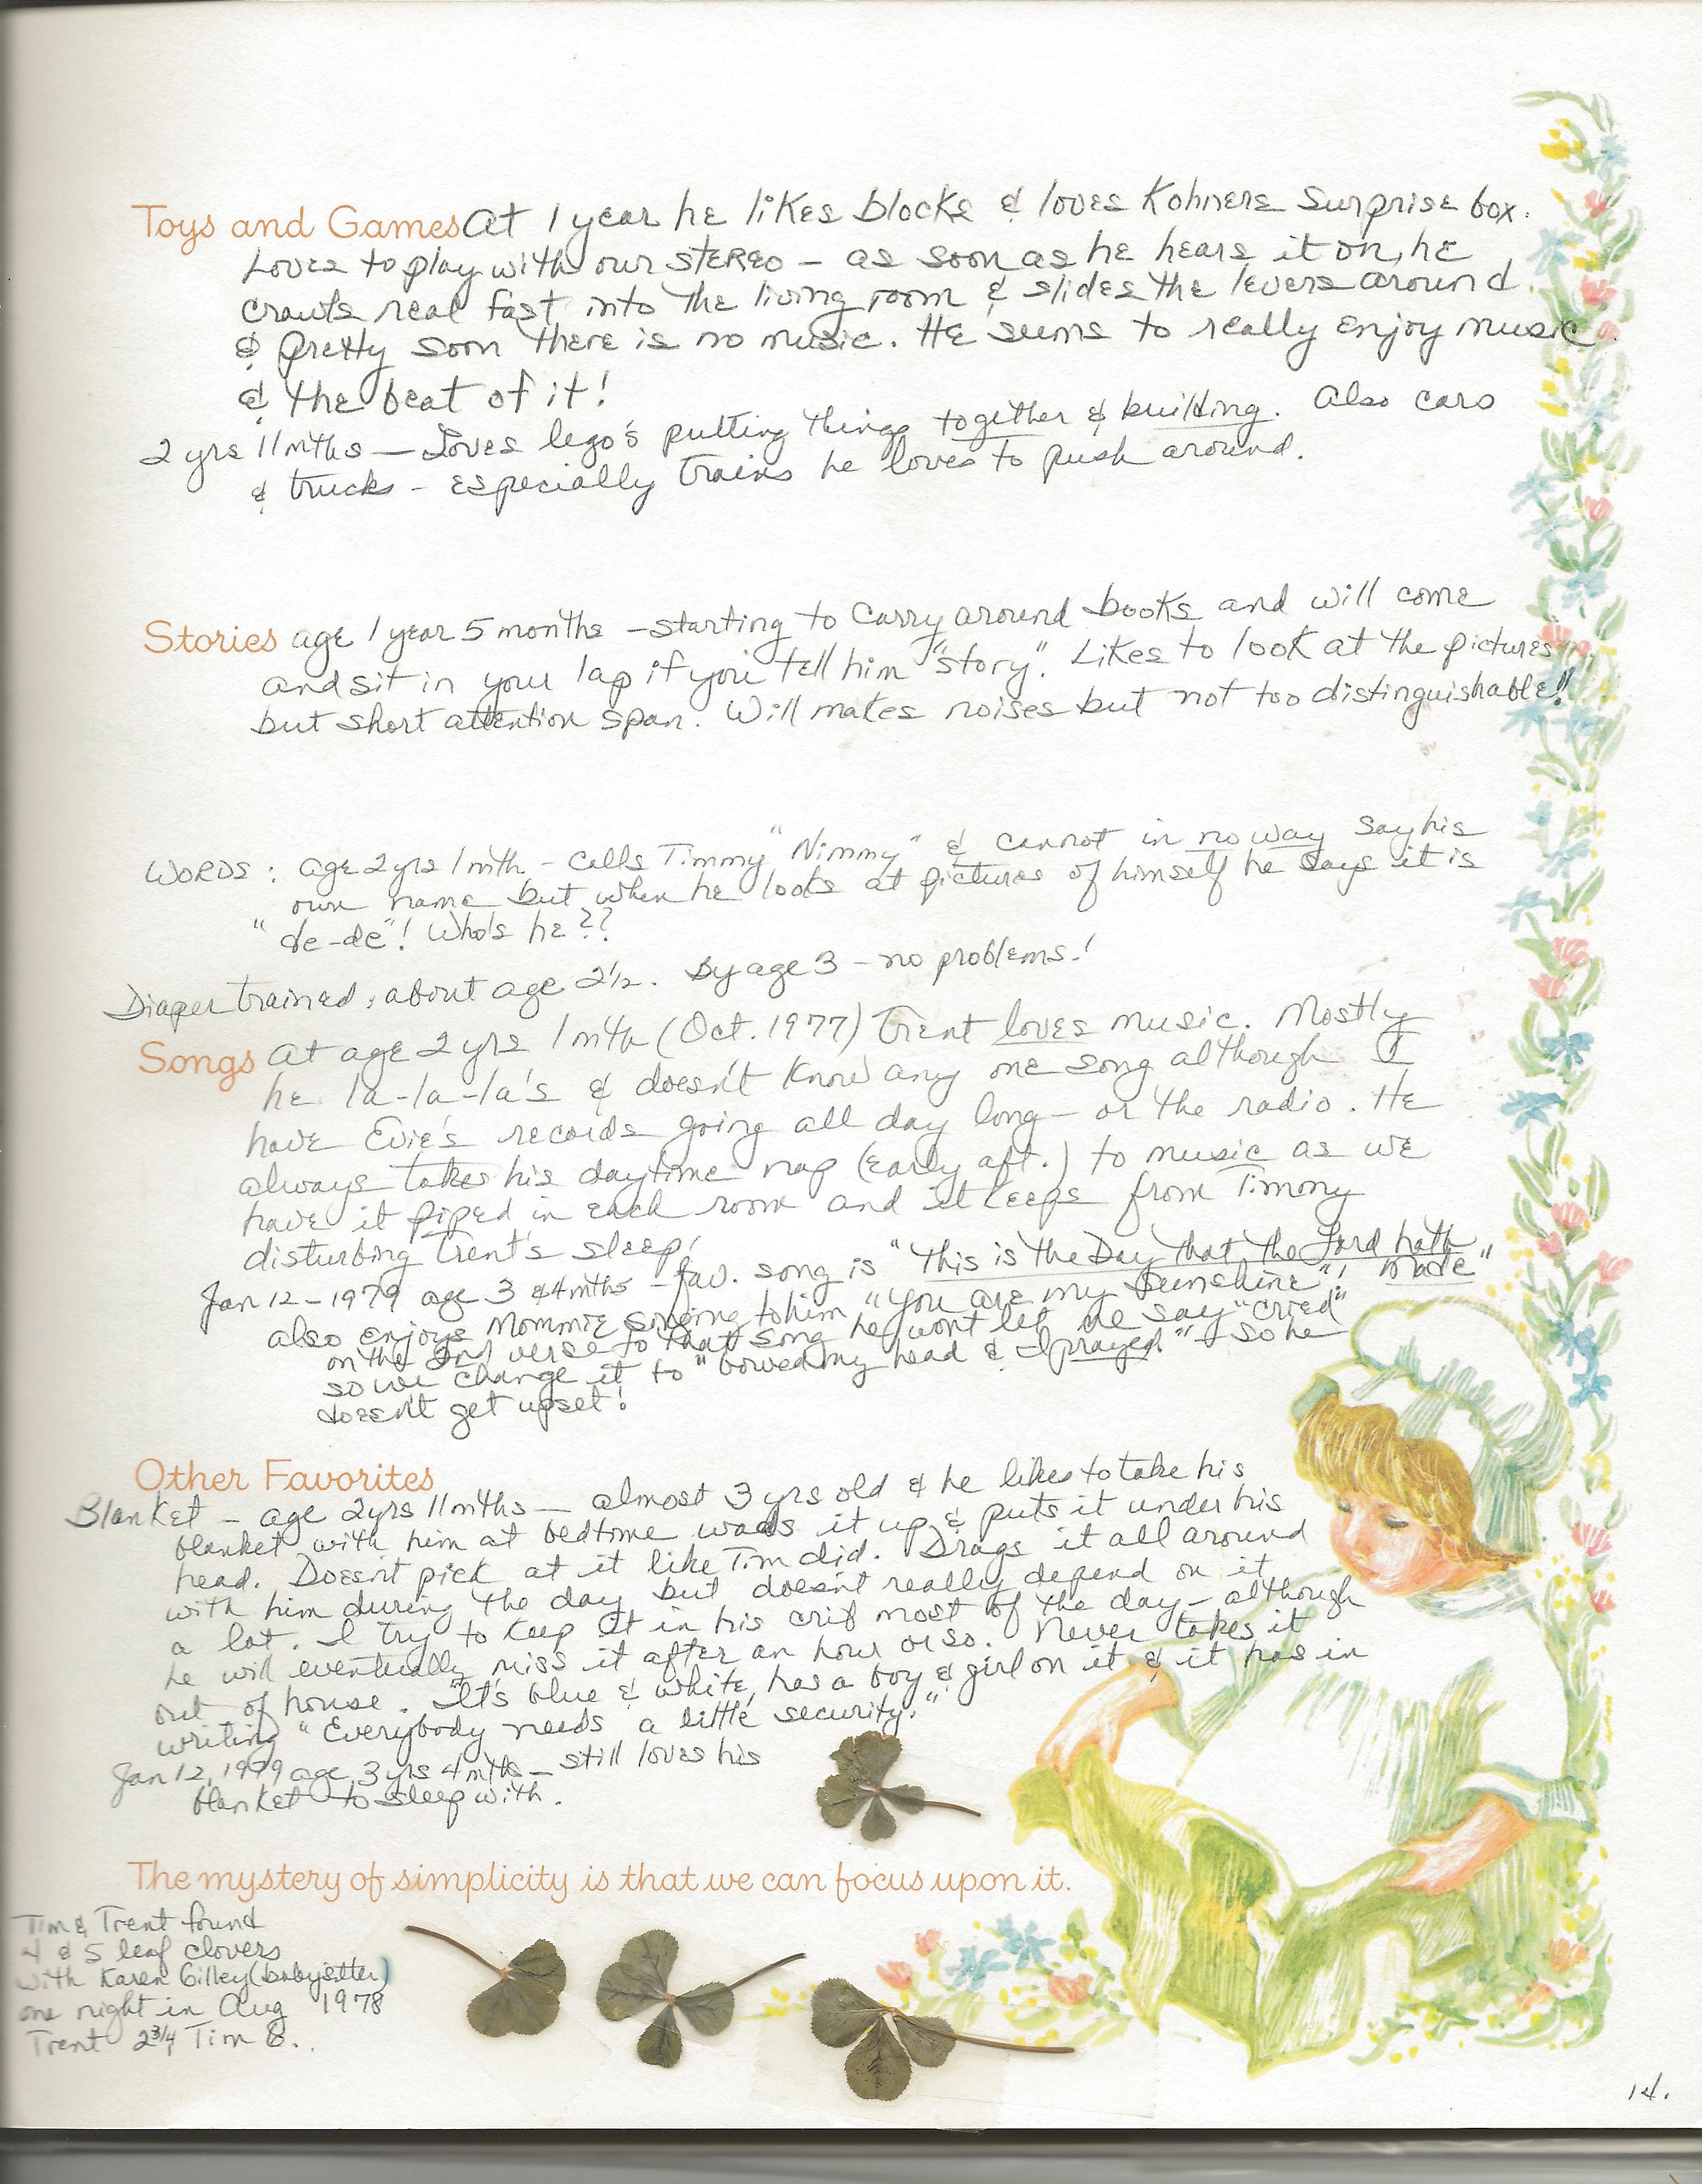 Toys and Games At 1 year he likes blocks & loves Kohners Surprise box.
Loves to play with our stereo - as soon as he hears it on, he
crawls real fast into the living room & slides the levers around
& pretty soon there is no music. He seems to really enjoy music
& the beat of it!
2 yrs 11 mths - Loves lego's putting things together & building. Also cars
& trucks - especially trains he loves to push around.
Stories age 1 year 5 months - starting to carry around books and will come
and sit in your lap if you tell him "story". Likes to look at the pictures
but short attention span. Will makes noises but not too distinguishable!!
WORDS: age 2 yrs 1 mth - calls Timmy "Nimmy" & cannot in no way say his
own name but when he looks at pictures of himself he says it is
"de-de"! Who's he??
Diaper trained: about age 2 1/2. By age 3 - no problems!
Songs At age 2 yrs 1 mth (Oct. 1977) Trent loves music. Mostly
he la-la-la's & doesn't know any one song although I
have Evie's records going all day long - or the radio. He
always takes his daytime nap (early aft.) to music as we
have it piped in each room and it keeps from Timmy
disturbing Trent's sleep!
Jan 12 - 1979 age 3 & 4 mths - fav. song is "This is the Day that the Lord hath made"
also enjoys Mommie singing to him "You are my Sunshine";
on the 2nd verse to that song he won't let me say "cried"
so we change it to "bowed my head & I prayed" - so he
doesn't get upset!
Other Favorites
Blanket - age 2 yrs 11 mths - almost 3 yrs old & he likes to take his
blanket with him at bedtime wads it up & puts it under his
head. Doesn't pick at it like Tim did. Drags it all around
with him during the day but doesn't really depend on it
a lot. I try to keep it in his crib most of the day - although
he will eventually miss it after an hour or so. Never takes it
out of house. It's blue & white, has a boy & girl on it & it has in
writing "Everybody needs a little security."
Jan 12, 1979 age 3 yrs 4 mths - still loves his
blanket to sleep with.
The mystery of simplicity is that we can focus upon it.
Tim & Trent found
4 & 5 leaf clovers
with Karen Gilley (babysitter)
one night in Aug 1978
Trent 2 3/4 Tim 8..
14.